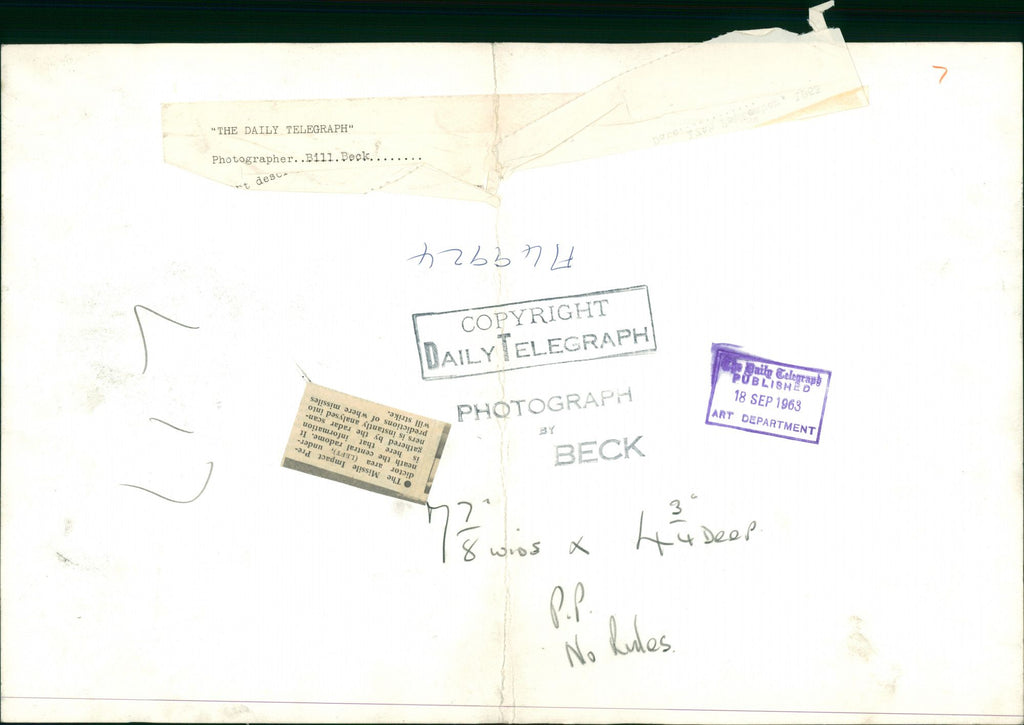 7
"THE DAILY TELEGRAPH"
Photographer..Bill.Beck........
A49924
COPYRIGHT
DAILY TELEGRAPH
PHOTOGRAPH
BY
BECK
The Daily Telegraph
PUBLISHED
18 SEP 1963
ART DEPARTMENT
● The Missile Impact Pre-
dictor area (LEFT), under-
neath the central radome. It
is here that information
gathered by the radar scan-
ners is instantly analysed into
predictions of where missiles
will strike.
7 7/8" wide x 4 3/4" Deep
P.P.
No Rules.